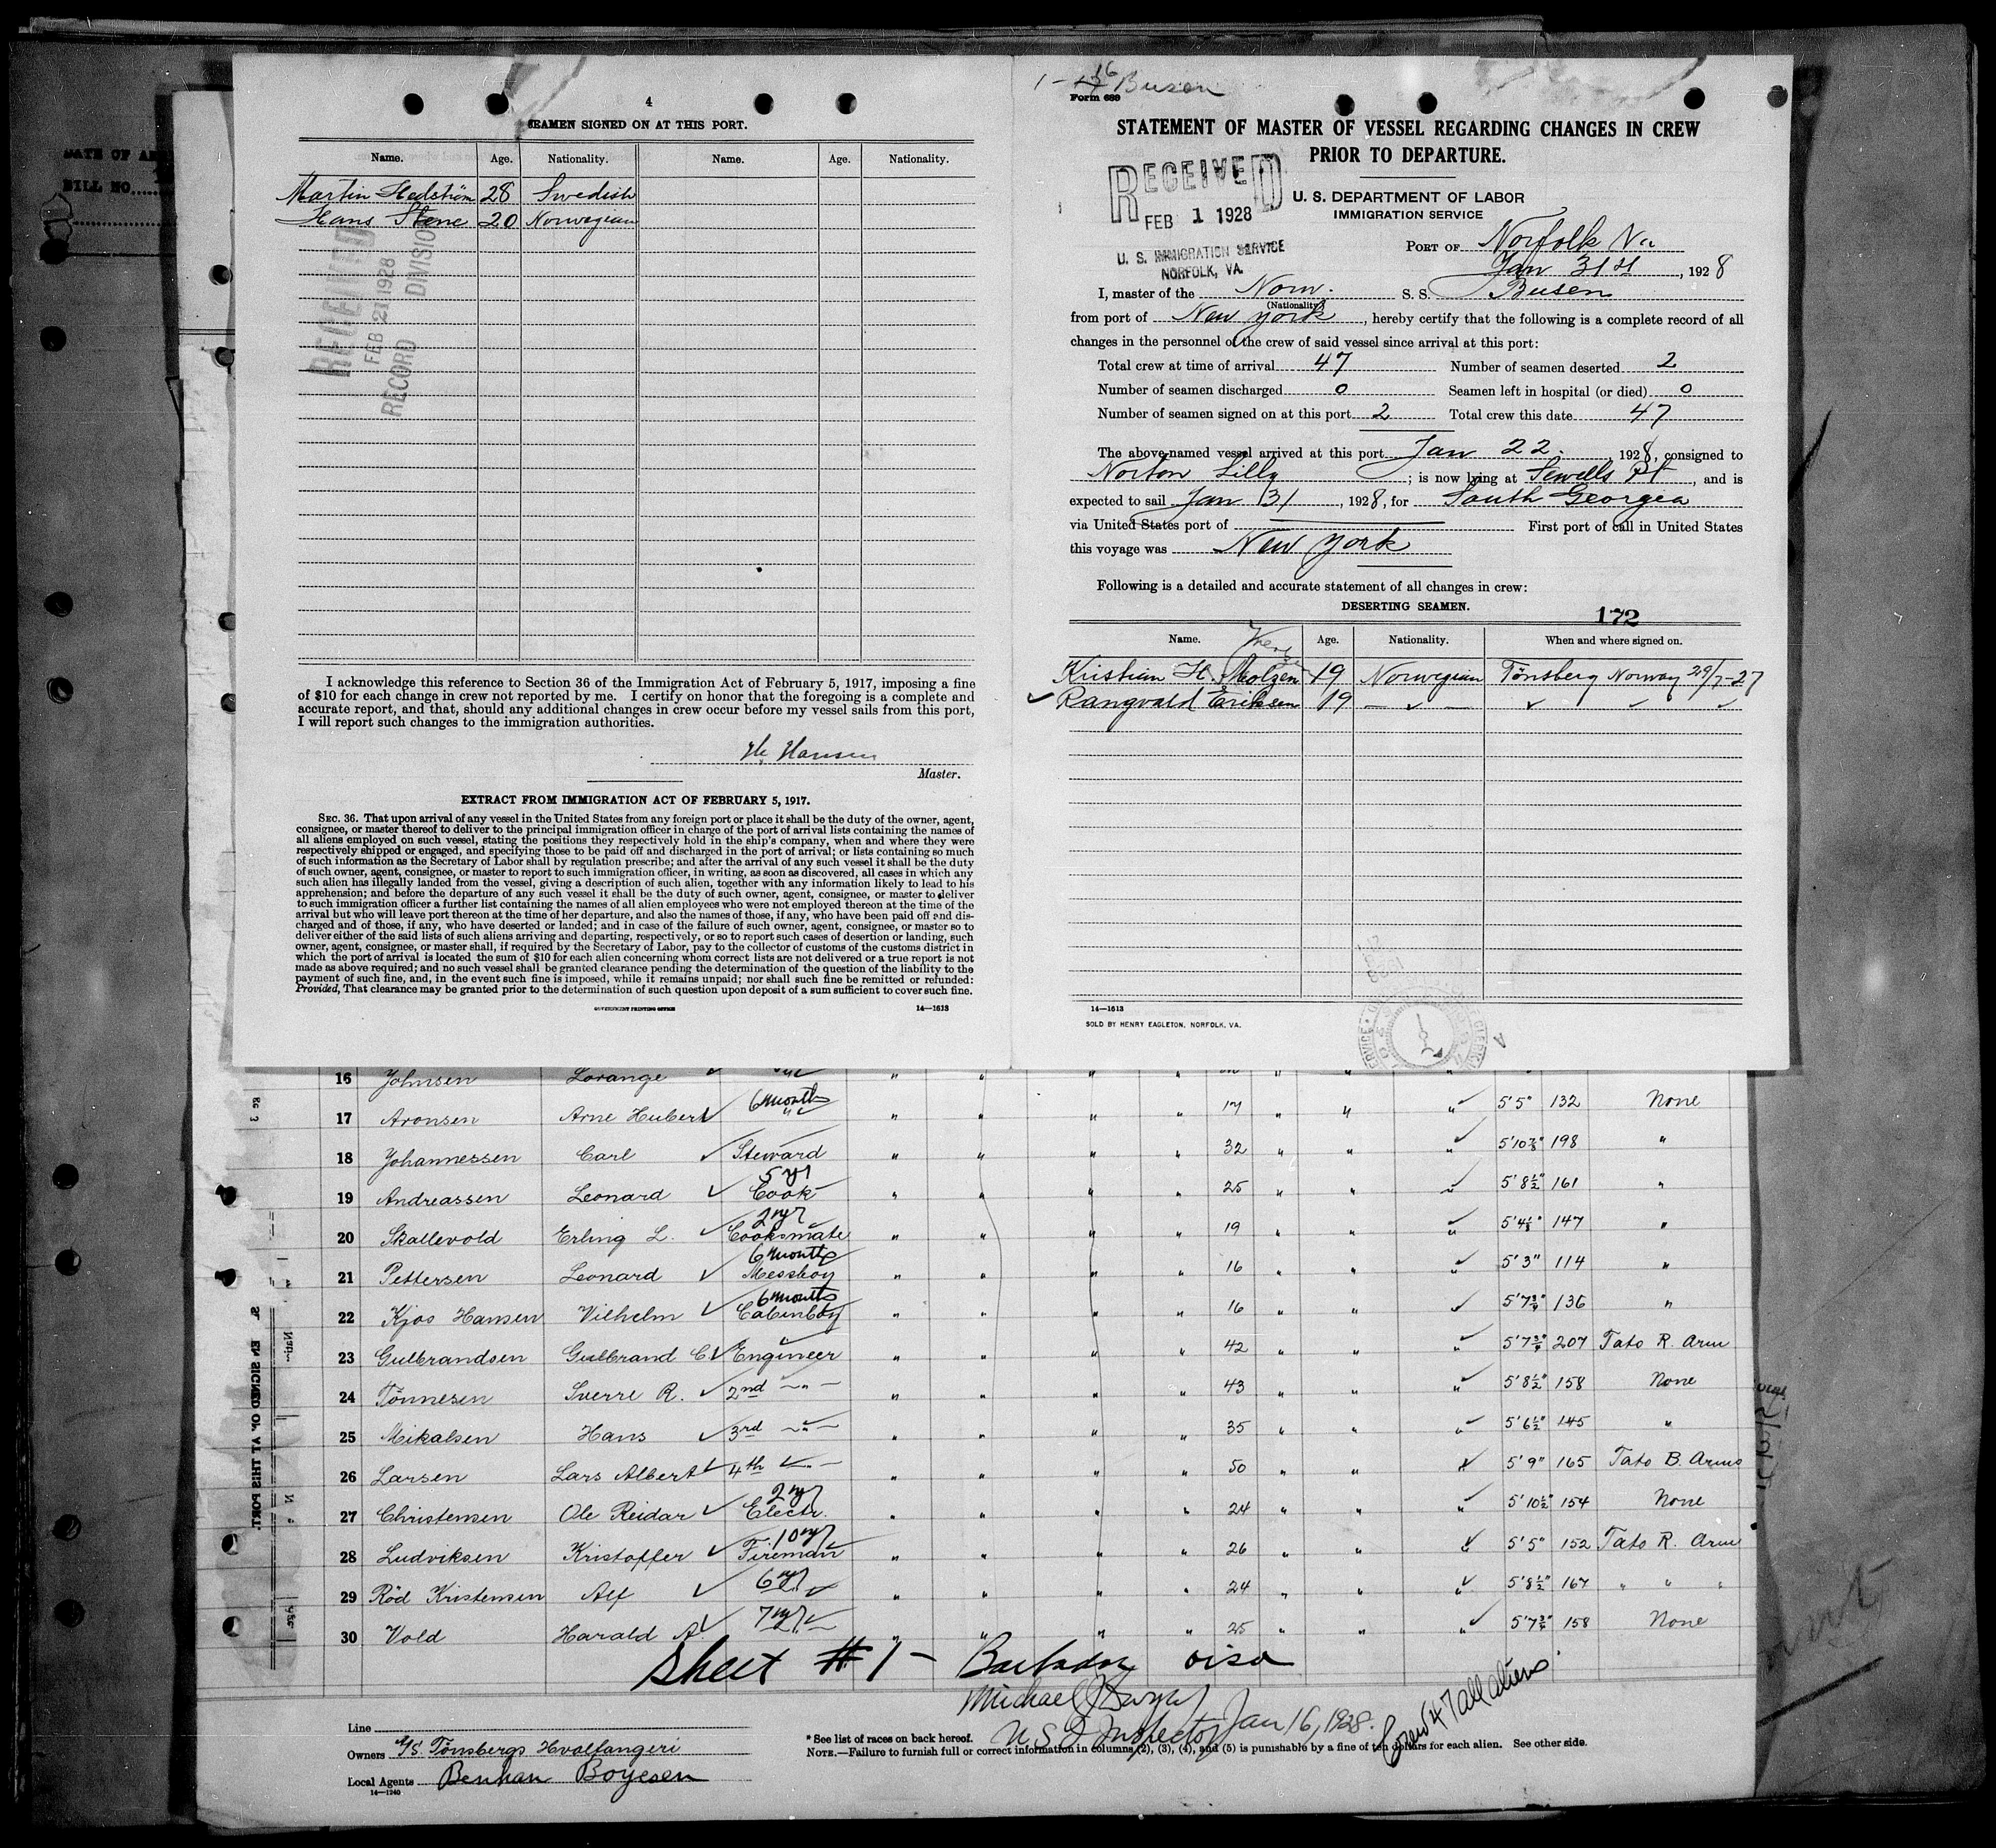 4
SEAMEN SIGNED ON AT THIS PORT.
Name. Age. Nationality. Name. Age. Nationality.
Martin Hedström 28 Swedish
Hans Stene 20 Norwegian
RECEIVED
FEB 21 1928
RECORD DIVISION
I acknowledge this reference to Section 36 of the Immigration Act of February 5, 1917, imposing a fine
of $10 for each change in crew not reported by me. I certify on honor that the foregoing is a complete and
accurate report, and that, should any additional changes in crew occur before my vessel sails from this port,
I will report such changes to the immigration authorities.
H. Hansen
Master.
EXTRACT FROM IMMIGRATION ACT OF FEBRUARY 5, 1917.
SEC. 36. That upon arrival of any vessel in the United States from any foreign port or place it shall be the duty of the owner, agent,
consignee, or master thereof to deliver to the principal immigration officer in charge of the port of arrival lists containing the names of
all aliens employed on such vessel, stating the positions they respectively hold in the ship's company, when and where they were
respectively shipped or engaged, and specifying those to be paid off and discharged in the port of arrival; or lists containing so much
of such information as the Secretary of Labor shall by regulation prescribe; and after the arrival of any such vessel it shall be the duty
of such owner, agent, consignee, or master to report to such immigration officer, in writing, as soon as discovered, all cases in which any
such alien has illegally landed from the vessel, giving a description of such alien, together with any information likely to lead to his
apprehension; and before the departure of any such vessel it shall be the duty of such owner, agent, consignee, or master to deliver
to such immigration officer a further list containing the names of all alien employees who were not employed thereon at the time of the
arrival but who will leave port thereon at the time of her departure, and also the names of those, if any, who have been paid off and dis-
charged and of those, if any, who have deserted or landed; and in case of the failure of such owner, agent, consignee, or master so to
deliver either of the said lists of such aliens arriving and departing, respectively, or so to report such cases of desertion or landing, such
owner, agent, consignee, or master shall, if required by the Secretary of Labor, pay to the collector of customs of the customs district in
which the port of arrival is located the sum of $10 for each alien concerning whom correct lists are not delivered or a true report is not
made as above required; and no such vessel shall be granted clearance pending the determination of the question of the liability to the
payment of such fine, and, in the event such fine is imposed, while it remains unpaid; nor shall such fine be remitted or refunded:
Provided, That clearance may be granted prior to the determination of such question upon deposit of a sum sufficient to cover such fine.
GOVERNMENT PRINTING OFFICE 14—1613
1-16 Busen
Form 689
STATEMENT OF MASTER OF VESSEL REGARDING CHANGES IN CREW
PRIOR TO DEPARTURE.
RECEIVED
FEB 1 1928
U. S. IMMIGRATION SERVICE
NORFOLK, VA.
U. S. DEPARTMENT OF LABOR
IMMIGRATION SERVICE
PORT OF Norfolk Va
Jan 31st, 1928
I, master of the Norw. S. S. Busen
(Nationality)
from port of New York, hereby certify that the following is a complete record of all
changes in the personnel of the crew of said vessel since arrival at this port:
Total crew at time of arrival 47 Number of seamen deserted 2
Number of seamen discharged 0 Seamen left in hospital (or died) 0
Number of seamen signed on at this port 2 Total crew this date 47
The above-named vessel arrived at this port Jan 22, 1928, consigned to
Norton Lilly; is now lying at Sewells Pt, and is
expected to sail Jan 31, 1928, for South Georgea
via United States port of First port of call in United States
this voyage was New York
Following is a detailed and accurate statement of all changes in crew:
DESERTING SEAMEN. 172
Name. Age. Nationality. When and where signed on.
Kristian H. Molzen 19 Norwegian Tönsberg Norway 29/7-27
✓ Rangvald Eriksen 19 — ✓ — ✓ ✓ ✓
14—1613
SOLD BY HENRY EAGLETON, NORFOLK, VA.
DATE OF
BILL NO.
16 Johnsen Lorange ✓ " " " " " "
17 Aronsen Arne Hubert ✓ 6 months " " " " " 17 " " " 5'5" 132 None
18 Johannessen Carl ✓ Steward " " " " 32 " " " 5'10⅞" 198 "
19 Andreassen Leonard ✓ 5 yr Cook " " " " 25 " " " 5'8½" 161 "
20 Skallevold Erling L. ✓ 2 yr Cooksmate " " " " 19 " " " 5'4⅛" 147 "
21 Pettersen Leonard ✓ 6 months Messboy " " " " 16 " " " 5'3" 114 "
22 Kjos Hansen Vilhelm ✓ 6 months Cabinboy " " " " 16 " " ✓ 5'7¾" 136 "
23 Gulbrandsen Gulbrand C. ✓ Engineer " " " " 42 " " " 5'7¾" 207 Tato R. Arm
24 Tönnesen Sverre R. ✓ 2nd —"— " " " " 43 " " " 5'8½" 158 None
25 Mikalsen Hans ✓ 3rd —"— " " " " 35 " " " 5'6½" 145 "
26 Larsen Lars Albert ✓ 4th —"— " " " " 50 " " " 5'9" 165 Tato B. Arms
27 Christensen Ole Reidar ✓ 2 yr Electr. " " " " 24 " " " 5'10½" 154 None
28 Ludviksen Kristoffer ✓ 10 yr Fireman " " " " 26 " " " 5'5" 152 Tato R. Arm
29 Röd Kristensen Alf ✓ 6 yr " " " " " 24 " " " 5'8½" 167 " " "
30 Vold Harald A. ✓ 7 yr " " " " " 25 " " " 5'7¾" 158 None
Sheet #1 - Barbados visa
Michael J.
U.S.I. Inspector Jan 16, 1928.
Crew 47 all aliens.
Line
Owners A/S. Tönsbergs Hvalfangeri
Local Agents Benhan Boyesen
14—1240
* See list of races on back hereof.
NOTE.—Failure to furnish full or correct information in columns (2), (3), (4), and (5) is punishable by a fine of ten dollars for each alien. See other side.